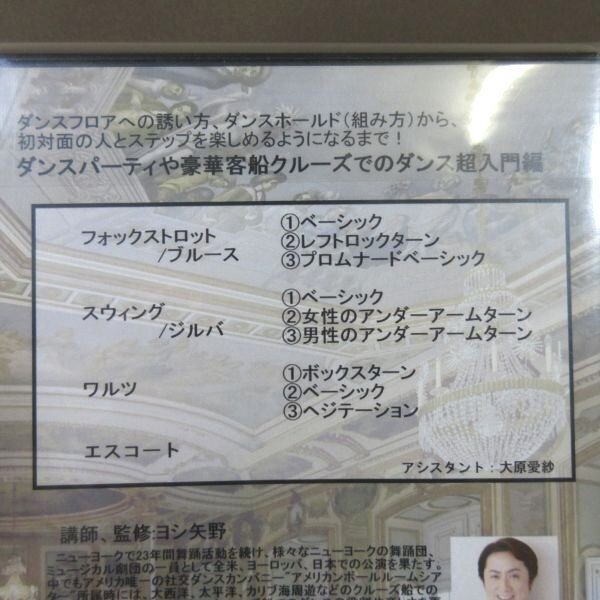 ダンスフロアへの誘い方、ダンスホールド（組み方）から、
初対面の人とステップを楽しめるようになるまで！
ダンスパーティや豪華客船クルーズでのダンス超入門編
フォックストロット
/ブルース
①ベーシック
②レフトロックターン
③プロムナードベーシック
スウィング
/ジルバ
①ベーシック
②女性のアンダーアームターン
③男性のアンダーアームターン
ワルツ
①ボックスターン
②ベーシック
③ヘジテーション
エスコート
アシスタント：大原愛紗
講師、監修：ヨシ矢野
ニューヨークで23年間舞踊活動を続け、様々なニューヨークの舞踊団、
ミュージカル劇団の一員として全米、ヨーロッパ、日本での公演を果たす。
中でもアメリカ唯一の社交ダンスカンパニー"アメリカンボールルームシア
ター"所属時には、大西洋、太平洋、カリブ海周遊などのクルーズ船での